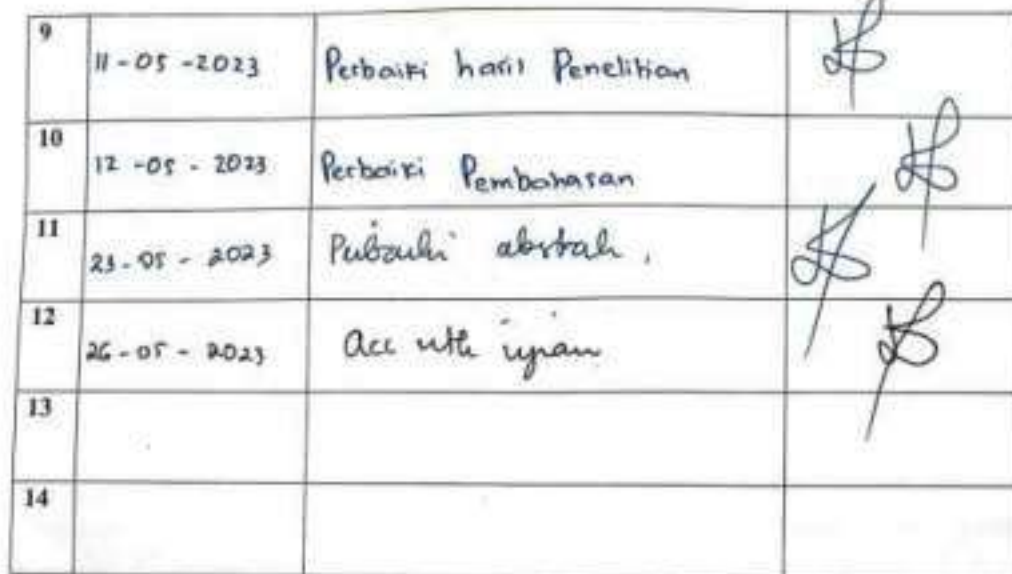 9
11-05-2023 Perbaiki hasil Penelitian
10
12-05-2023 Perbaiki Pembahasan
11
23-05-2023 Perbaiki abstrak,
12
26-05-2023 Acc utk ujian
13
14